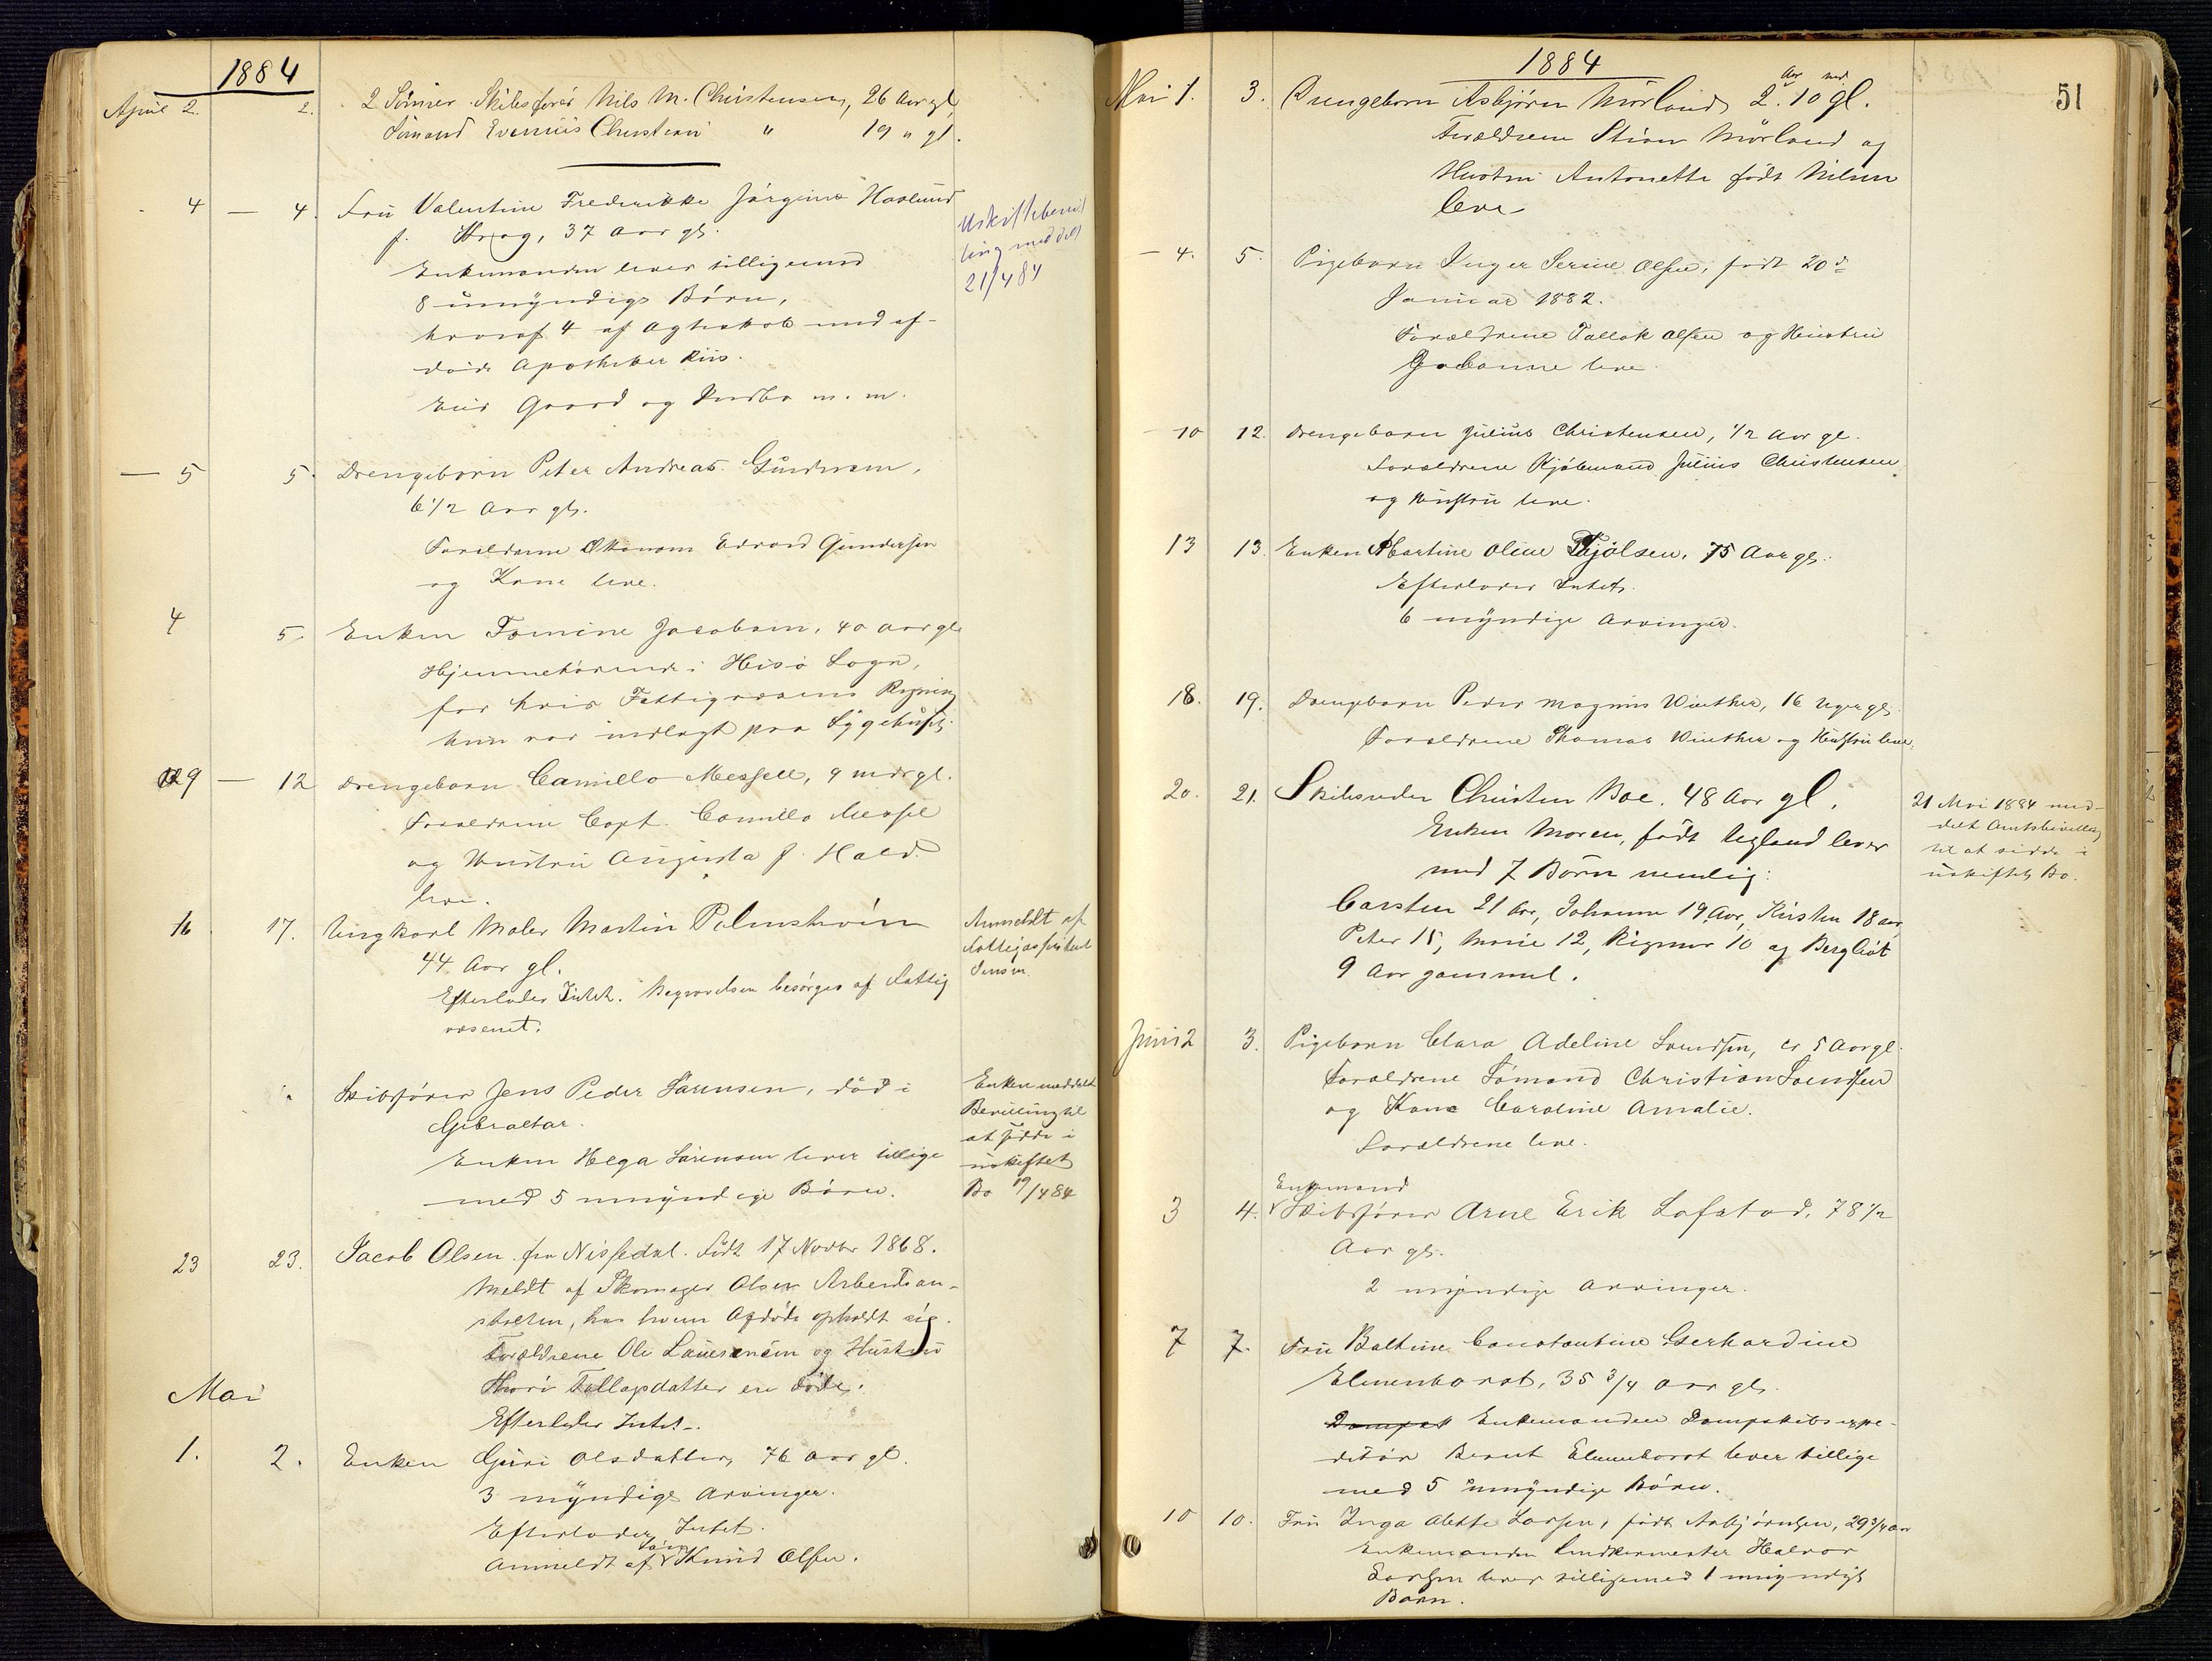 1884
April 2. 2. 2 Sönner Skibsförer Nils M. Christensen, 26 Aar gl,
Sömand Evenius Christian " 19 " gl.
4 — 4. Fru Valentine Frederikke Jörgine Haslund
f. Krog, 37 Aar gl.
Enkemanden lever tilligemed
8 umyndige Börn,
hvoraf 4 af Ægteskab med af-
döde Apotheker Riis.
Eier Gaard og Indbo m. m.
Uskiftebevil
ling meddelt
21/4 84
— 5 5. Drengebarn Peter Andreas Gundersen,
6 1/2 Aar gl.
Forældrene Økonom Edvard Gundersen
og Kone leve.
4 5. Enken Tomine Jacobsen, 40 aar gl.
Hjemmehörende i Hisö Sogn,
for hvis Fattigvæsens Regning
hun var indlagt paa Sygehuset.
9 — 12 Drengebarn Camillo Messell, 9 mdr gl.
Forældrene Capt. Camillo Messel
og Hustru Augusta f. Hald
leve.
16 17. Ungkarl Maler Martin Palmström
44 Aar gl.
Efterlader Intet. Begravelsen besörges af Fattig
væsenet.
Anmeldt af
Jensen
" Skibsförer Jens Peder Sörensen, död i
Gibraltar.
Enken Helga Sörensen lever tillige
med 5 umyndige Börn.
Enken meddelt
Bevilling til
at sidde i
uskiftet
Bo 19/4 84
23 23. Jacob Olsen fra Nissedal. Födt 17 Novbr 1868.
Meldt af Skomager Olsen Arbeidsan-
stalten, hos hvem Afdöde opholdt sig.
Forældrene Ole og Hustru
Thori Tallagsdatter ere döde.
Efterlader Intet.
Mai
1. 2. Enken Guri Olsdatter, 76 Aar gl.
3 myndige Arvinger.
Efterlader Intet.
Anmeldt af Sön Knud Olsen.
51
1884
Mai 1. 3. Drengebarn Asbjörn Mörland, 2 Aar 10 md gl.
Forældrene Stian Mörland og
Hustru Antonette födt Nilsen
leve
— 4. 5. Pigebarn Inger Serine Olsen, födt 20de
Januar 1882.
Forældrene Tallak Olsen og Hustru
leve.
— 10 12. Drengebarn Julius Christensen, 1/2 Aar gl.
Forældrene Kjöbmand Julius Christensen
og Hustru leve.
13 13. Enken Martine Oline Thjölsen, 75 Aar gl.
Efterlader Intet.
6 myndige Arvinger.
18. 19. Drengebarn Peder Magnus Winther, 16 Uger gl.
Forældrene Thomas Winther og Hustru leve.
20. 21. Skibsreder Christen Boe. 48 Aar gl.
Enken Maren, födt Ugland lever
med 7 Börn nemlig:
Carsten 21 Aar, Johanne 19 Aar, Kirsten 18 aar
Peter 15, Marie 12, Rigmor 10 og Bergliöt
9 Aar gammel.
21 Mai 1884 med-
delt Amtsbevilling
til at sidde i
uskiftet Bo.
Juni 2 3. Pigebarn Clara Adeline Svendsen, er 5 Aar gl.
Forældrene Sömand Christian Svendsen
og Kone Caroline Amalie.
Forældrene leve.
3 4. Enkemand Skibsförer Arne Erik Lofstad, 78 1/2
Aar gl.
2 myndige Arvinger.
7 7. Fru Baltine Constantine Gerhardine
Elmenhorst, 35 3/4 Aar gl.
Dampsk Enkemanden Dampskibsexpe-
ditör Bernt Elmenhorst lever tillige
med 5 umyndige Börn.
10 10. Fru Inga Alette Larsen, födt Asbjörnsen, 29 3/4 aar
Enkemanden Halvor
Larsen lever tilligemed 1 umyndigt
Barn.